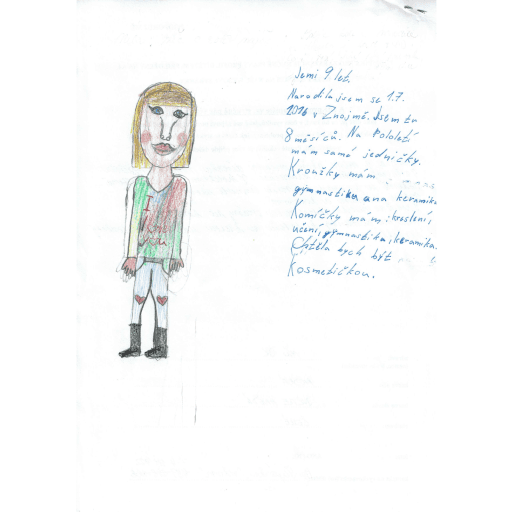 Jemi 9 let.
Narodila jsem se 1.7.
2016 v Znojmě. Jsem tr
8 měsíců. Na Pololetí
mám samé jedničky.
Kroužky mám
gymnastiku ana keramiku
Koníčky mám: kreslení,
učení, gymnastika, keramika.
Chtěla bych být
Kosmetičkou.
I